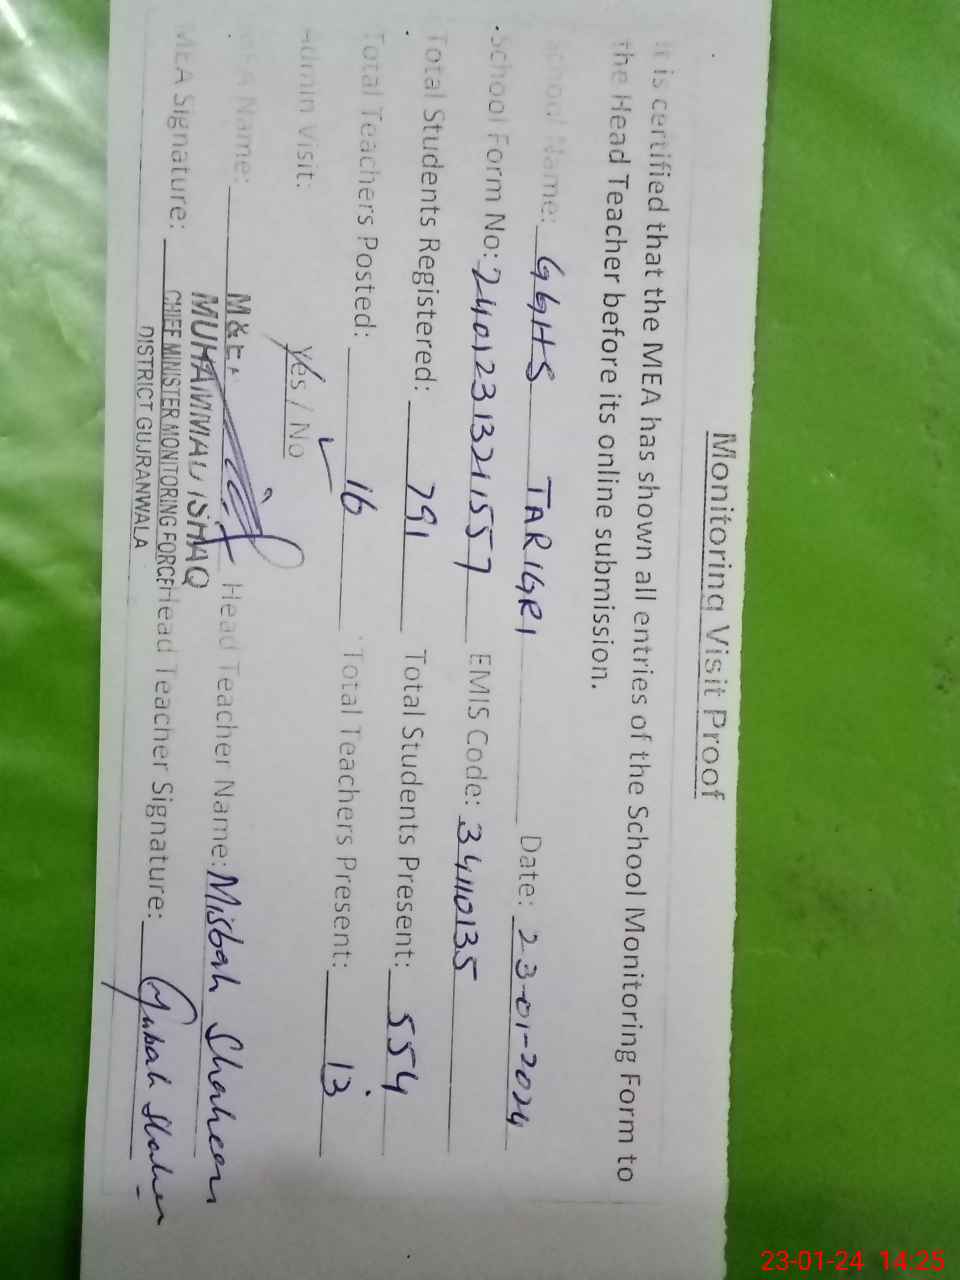 Monitoring Visit Proof
It is certified that the MEA has shown all entries of the School Monitoring Form to
the Head Teacher before its online submission.
School Name: GGHS TARIGRI Date: 23-01-2024
School Form No: 2401231321557 EMIS Code: 34110135
Total Students Registered: 791 Total Students Present: 554
Total Teachers Posted: 16 Total Teachers Present: 13
Admin Visit: Yes / No ✓
MEA Name: M&EA MUHAMMAD ISHAQ Head Teacher Name: Misbah Shaheen
MEA Signature: CHIEF MINISTER MONITORING FORCE Head Teacher Signature: Misbah Shaheen
DISTRICT GUJRANWALA
23-01-24 14:25